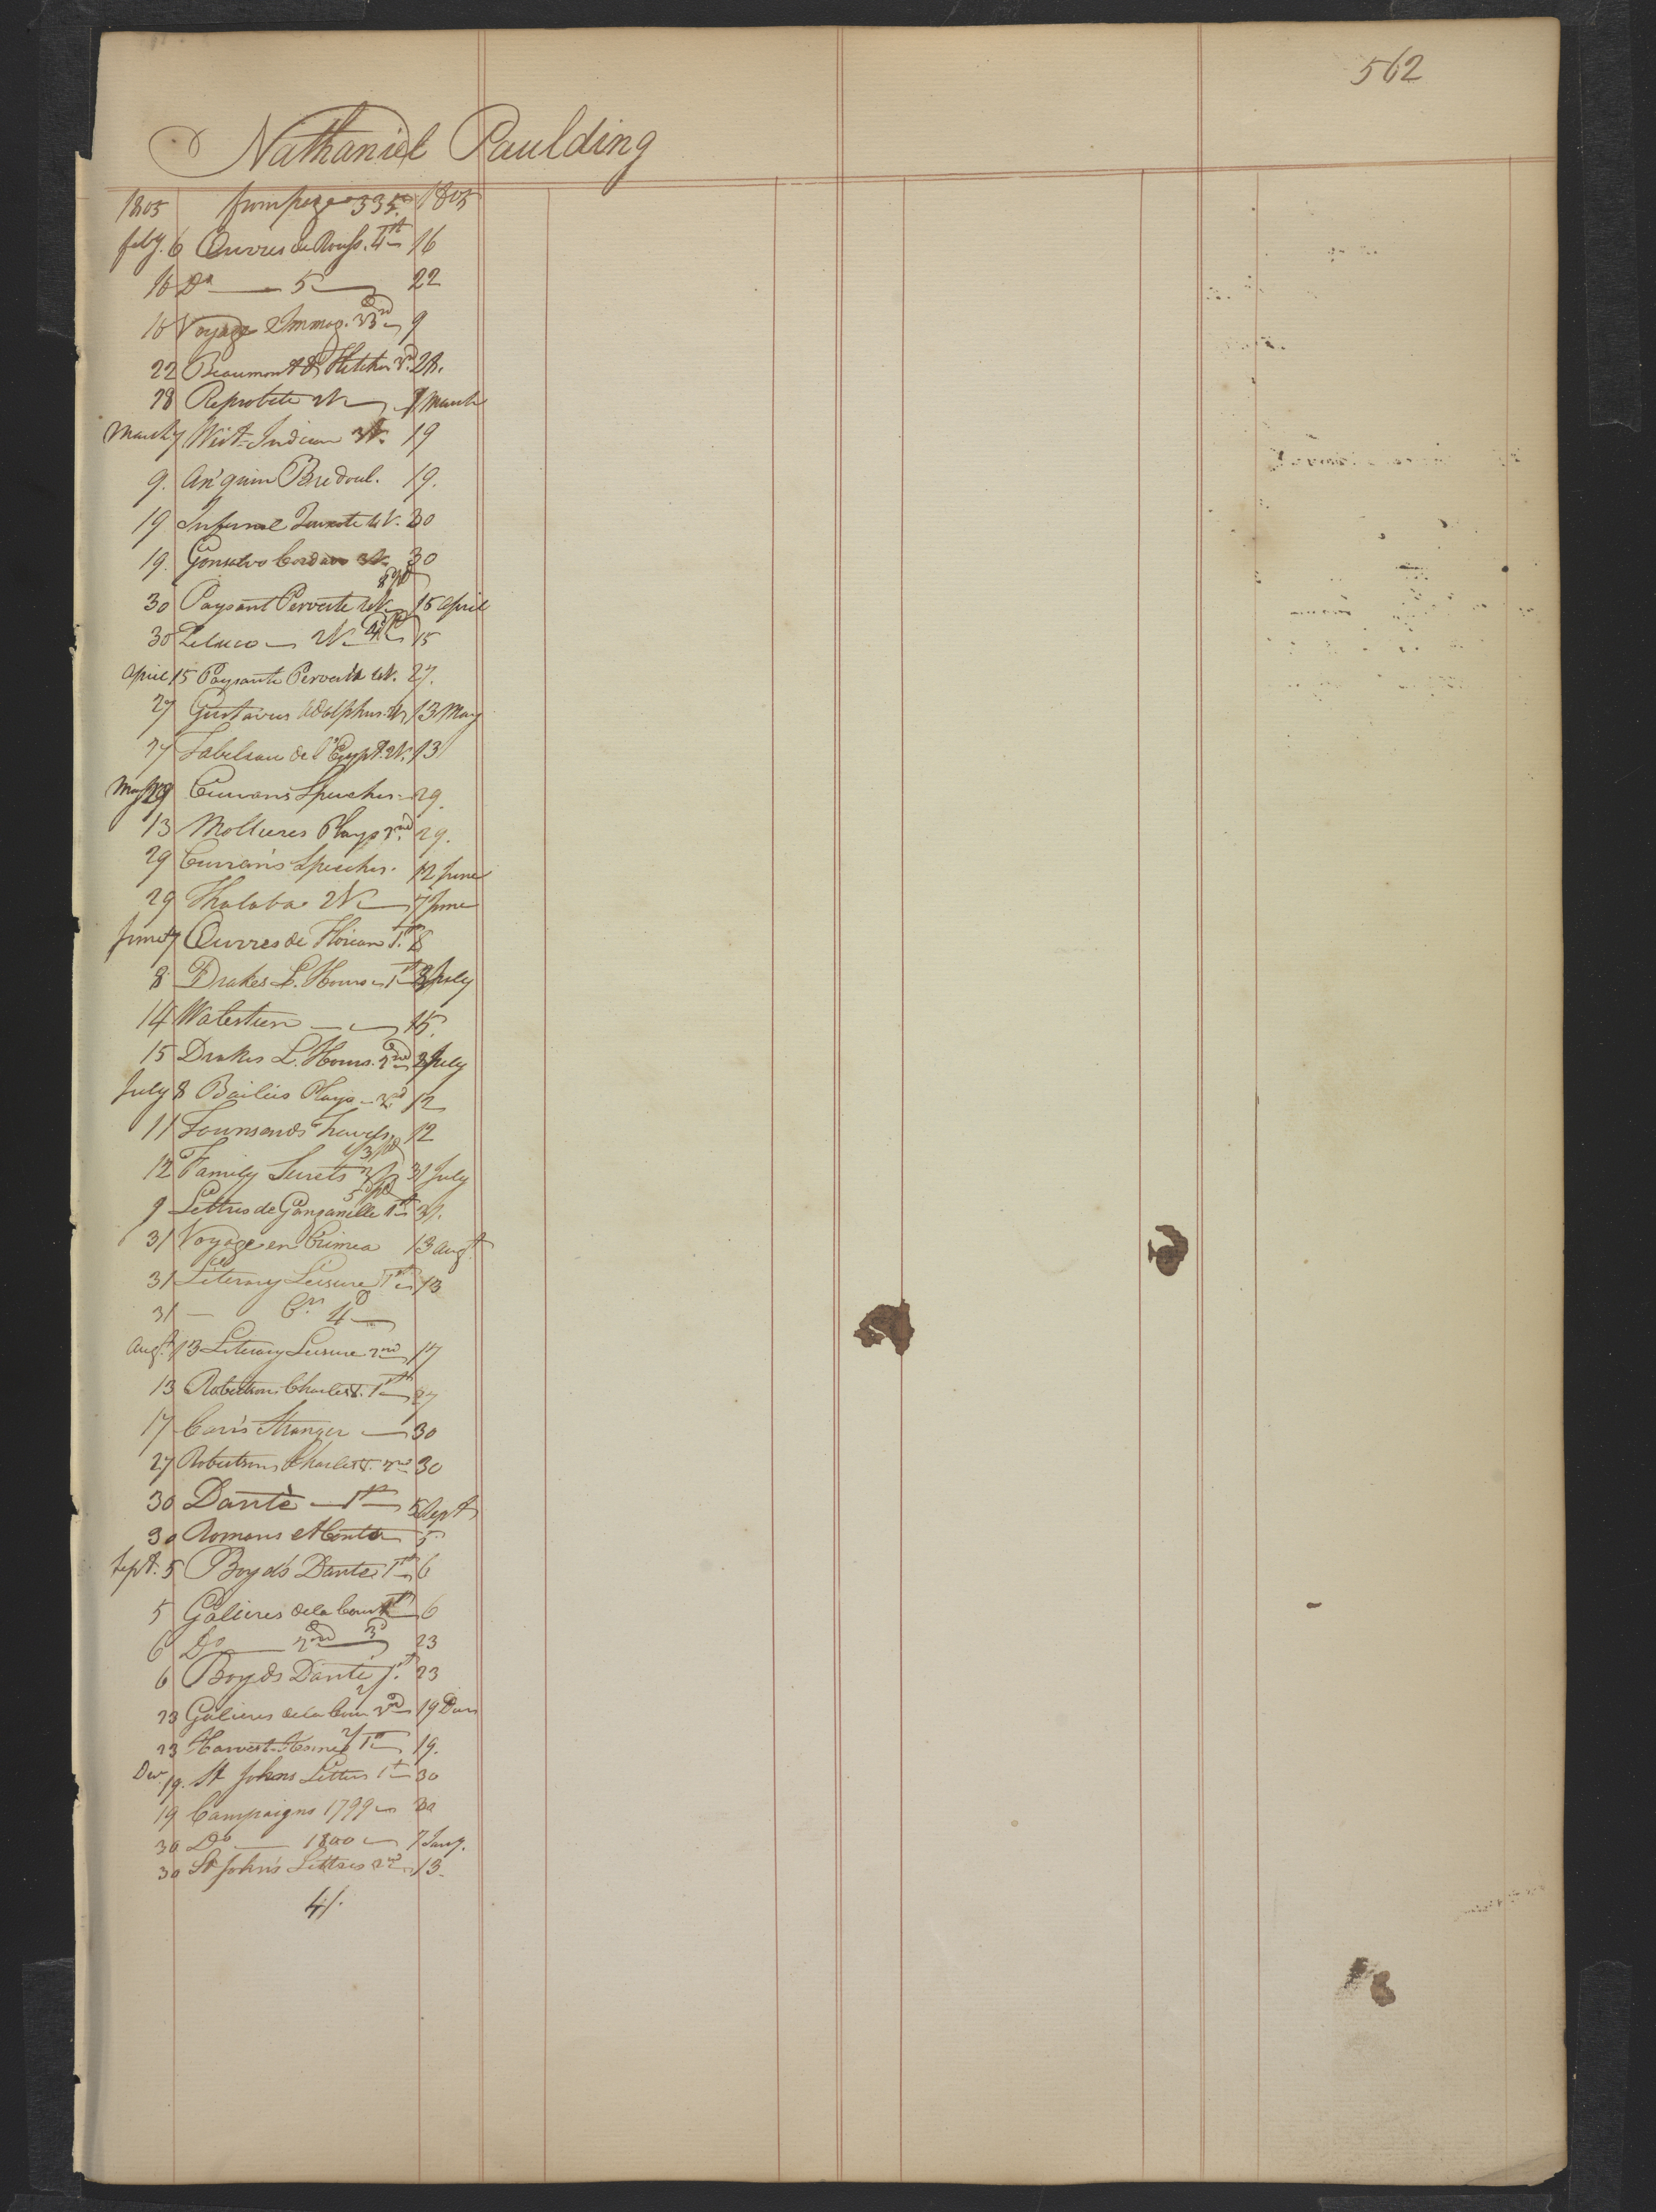 562
Nathaniel Paulding
1805 from page 335. 1805
feby. 6 Œuvres de Rouss. 4th 16
16 Do 5 22
16 Voyage Immag. 33rd 9
22 Beaumont & Fletcher 28.
28 Reprobate 2V March
March 7 West Indian 19
9. 19.
19 Infernal 30
19. Gonsalvo Cordova 30
30 Paysant Perverte 15 April
30 Zeluco 2V 15
April 15 Paysante Pervertie 27.
27 Gustavus Adolphus 13 May
27 Tableau de l'Egypt. 2V. 13
May Currans Speeches 29.
13 Mollieres Plays 2nd 29.
29 Curran's Speeches. 12 June
29 Thalaba 2V 7 June
June 7 Œuvres de Florian 1st 8
8 Drakes L. Hours 1st July
14 Walstein 15.
15 Drakes L. Hours. 2nd July
July 8 Bailies Plays 12
11 Tounsends Travels 12
12 Family Secrets 31 July
9 Lettres de Ganganelle 1st 31.
31 Voyage en Crimea 13 Augt.
31 Literary Leisure 1st 13
31
Augt. 13 Literary Leisure 2nd 17
13 Robertsons Charles V. 1st 27
17 Carrs Stranger 30
27 Robertsons Charles V. 2nd 30
30 Dantè 1st 5 Sept
30 Romans 5
Sept. 5 Boyds Dante 1st 6
5 Galieres de la Cour 1st 6
6 Do 2nd 3d 23
6 Boyds Dante 23
23 Galieres de la Cour 19 Decr
23 Harvest Home 1st 19.
Decr 19. St Johns Letters 1st 30
19 Campaigns 1799 30
30 Do 1800 7 Jany.
30 St John's Letters 2nd 13
41.